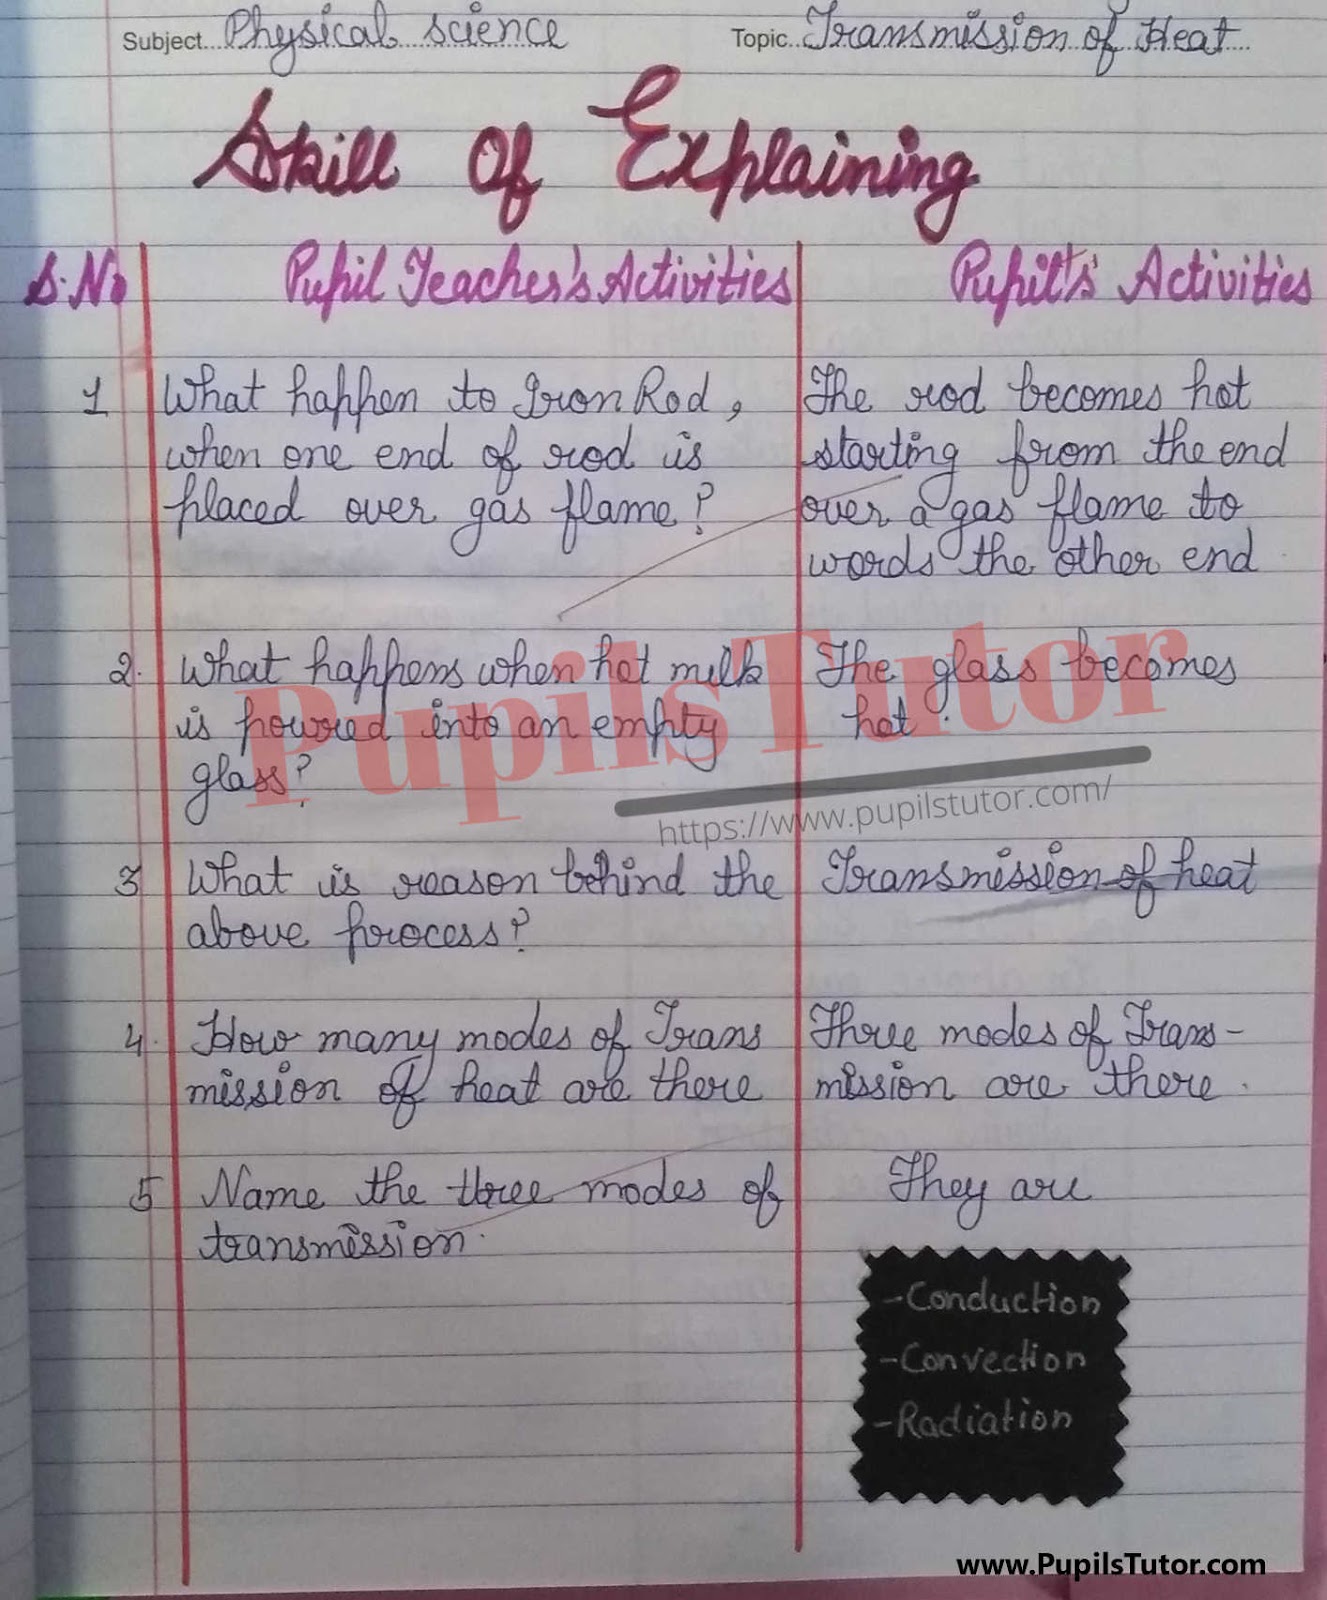 Subject...Physical science
Topic...Transmission of Heat...
Skill Of Explaining
S.No
Pupil Teacher's Activities
Pupil's Activities
1
What happen to Iron Rod,
when one end of rod is
placed over gas flame?
The rod becomes hot
starting from the end
over a gas flame to
words the other end
2.
What happens when hot milk
is poured into an empty
glass?
The glass becomes
hot.
PupilsTutor
https://www.pupilstutor.com/
3
What is reason behind the
above process?
Transmission of heat
4.
How many modes of Trans
mission of heat are there
Three modes of Trans-
mission are there.
5
Name the three modes of
transmission.
They are
-Conduction
-Convection
-Radiation
www.PupilsTutor.com